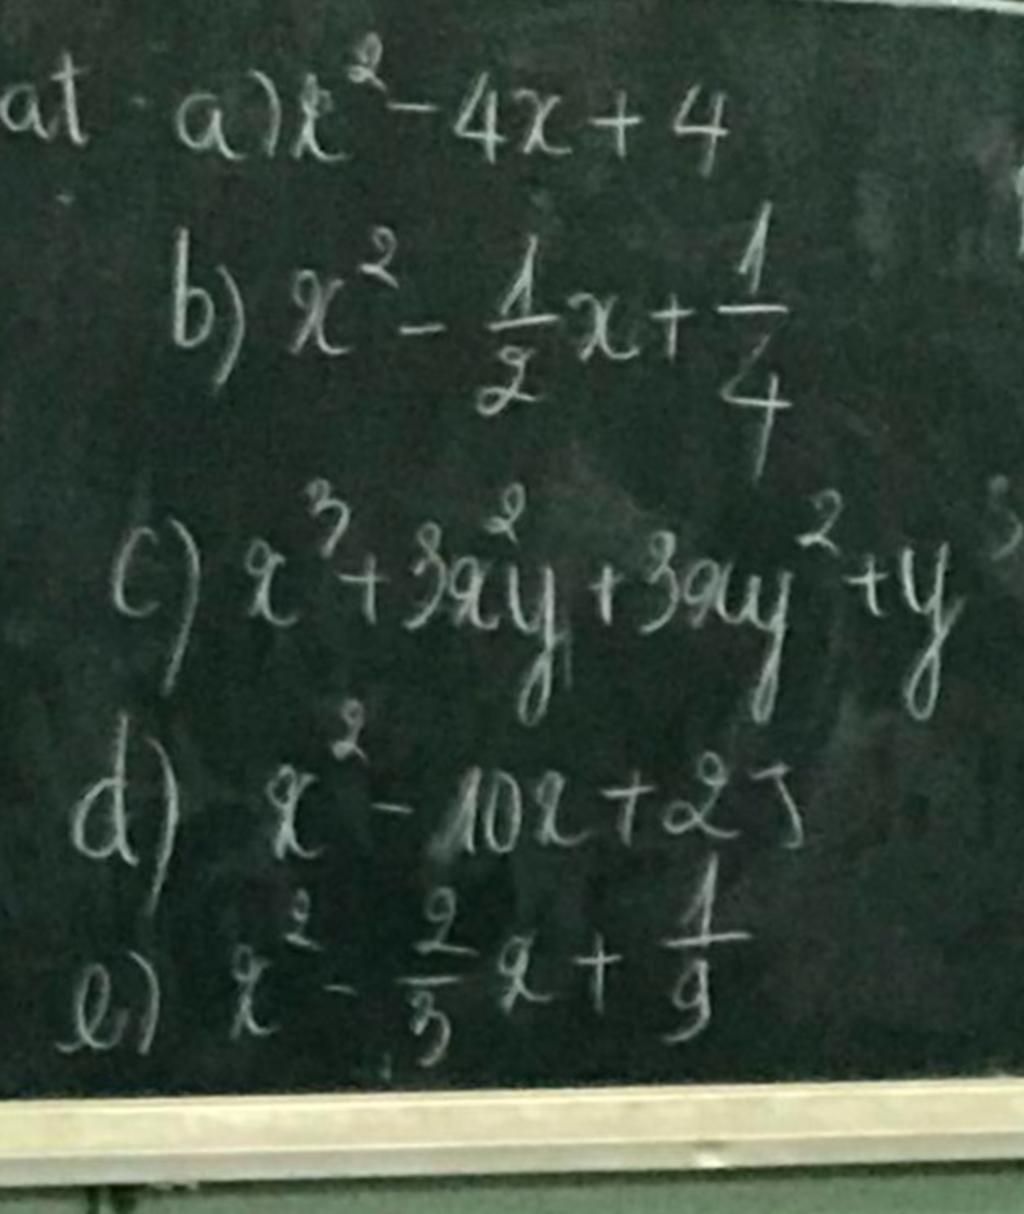 at a) x² - 4x + 4
b) x² - 1/2 x + 1/4
c) x³ + 3x²y + 3xy² + y³
d) x² - 10x + 25
e) x² - 2/3 x + 1/9